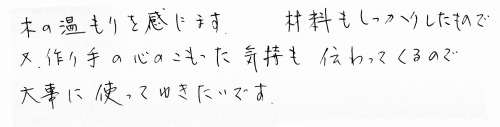 木の温もりを感じます. 材料もしっかりしたもので
又.作り手の心のこもった気持も 伝わってくるので
大事に使ってゆきたいです.